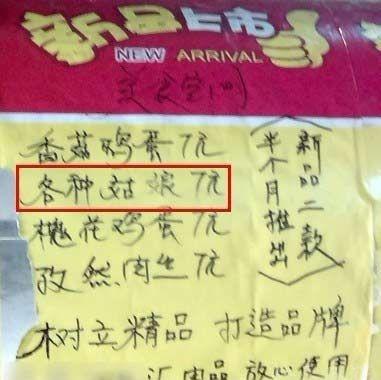 新品上市
NEW ARRIVAL
香菇鸡蛋7元
各种姑娘7元
槐花鸡蛋7元
孜然肉丝7元
〈新品二款
半个月推出〉
树立精品 打造品牌
放心使用